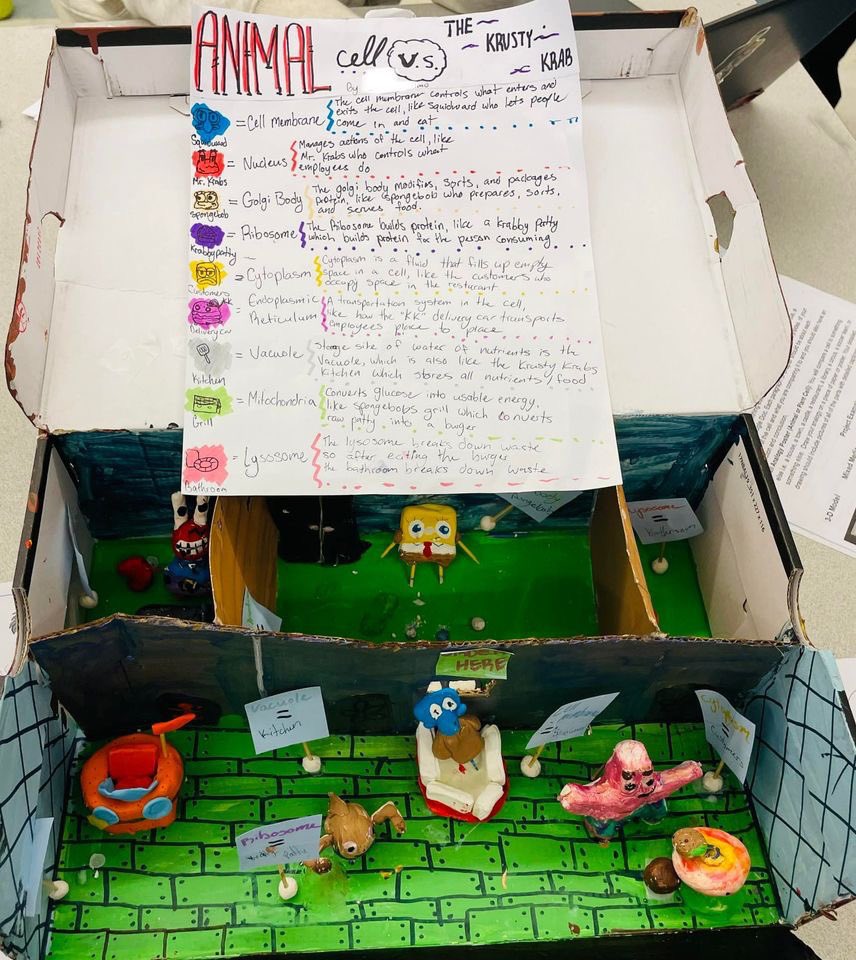 ANIMAL cell v.s. THE KRUSTY KRAB
By
Squidward = Cell membrane The cell membrane controls what enters and
exits the cell, like Squidward who lets people
come in and eat
Mr. Krabs = Nucleus Manages actions of the cell, like
Mr. Krabs who controls what
employees do
Spongebob = Golgi Body The golgi body modifies, sorts, and packages
protein, like Spongebob who prepares, sorts,
and serves food.
Krabby patty = Ribosome The Ribosome builds protein, like a Krabby Patty
which builds protein for the person consuming.
Customers = Cytoplasm Cytoplasm is a fluid that fills up empty
space in a cell, like the customers who
occupy space in the resturant
KK
Delivery car = Endoplasmic
Reticulum A transportation system in the cell,
like how the "KK" delivery car transports
employees place to place
Kitchen = Vacuole Storage site of water of nutrients is the
Vacuole, which is also like the Krusty Krabs
Kitchen which stores all nutrients/food
Grill = Mitochondria Converts glucose into usable energy,
like spongebobs grill which converts
raw patty into a burger
Bathroom = Lysosome The lysosome breaks down waste
so after eating the burger
the bathroom breaks down waste
Lysosome
=
Bathroom
HERE
Vacuole
=
Kitchen
Cytoplasm
=
Customers
Ribosome
=
3-D Model
Project
Mixed